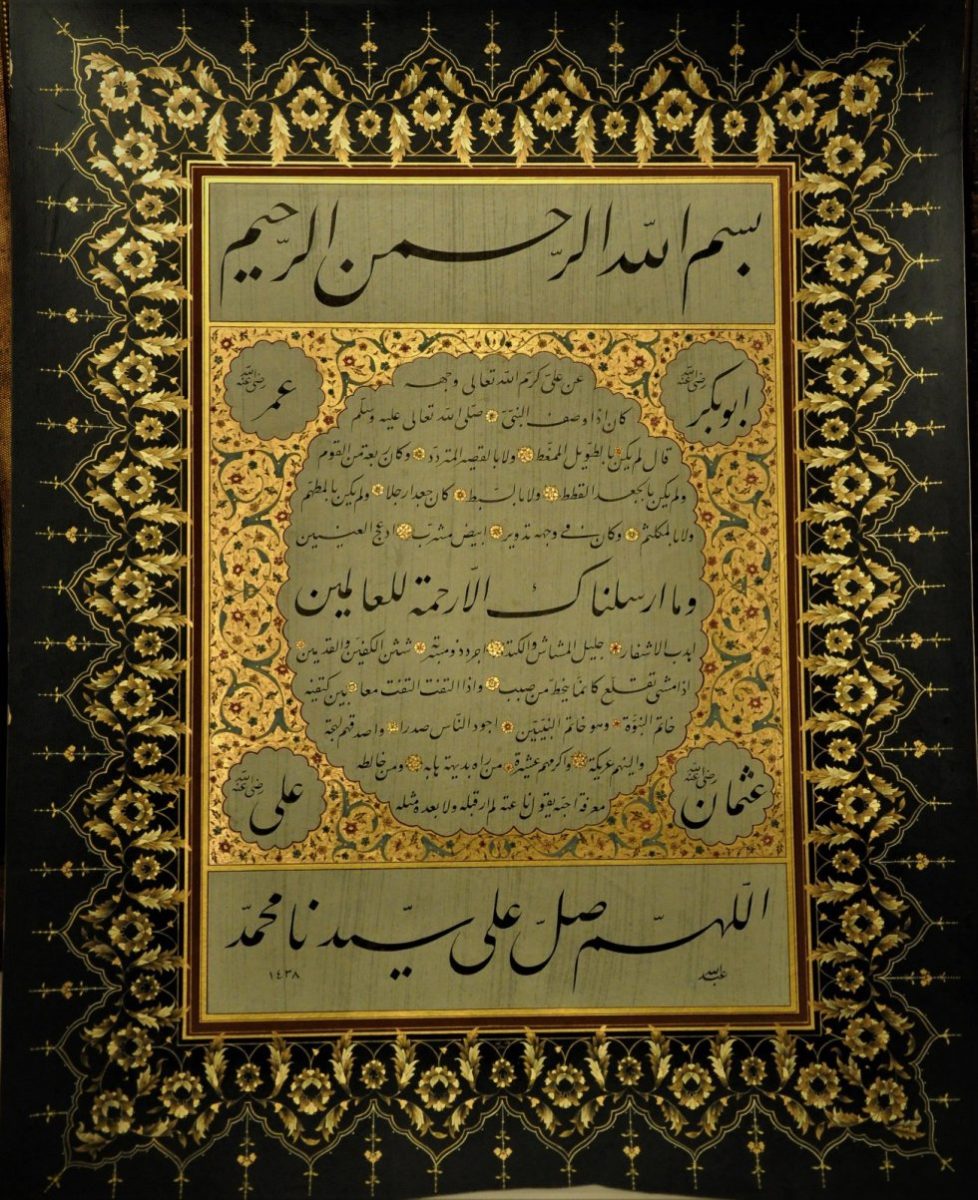 بسم الله الرحمن الرحيم
ابوبكر رضي الله عنه
عمر رضي الله عنه
عن عليّ كرّم الله تعالى وجهه
كان اذا وصف النبيّ صلّى الله تعالى عليه وسلّم
قال لم يكن بالطويل الممغط ولا بالقصير المتردد وكان ربعة من القوم
ولم يكن بالجعد القطط ولا بالسبط كان جعدا رجلا ولم يكن بالمطهم
ولا بالمكلثم وكان في وجهه تدوير ابيض مشرب ادعج العينين
وما ارسلناك الّا رحمة للعالمين
اهدب الاشفار جليل المشاش والكتد اجرد ذو مسربة شثن الكفين والقدمين
اذا مشى تقلع كانما ينحط من صبب واذا التفت التفت معا بين كتفيه
خاتم النبوّة وهو خاتم النبيّين اجود النّاس صدرا واصدقهم لهجة
والينهم عريكة واكرمهم عشيرة من راه بديهة هابه ومن خالطه
معرفة احبّه يقول ناعته لم ار قبله ولا بعده مثله
عثمان رضي الله عنه
علي رضي الله عنه
اللّهمّ صلّ على سيّدنا محمّد
عبدالله ١٤٣٨